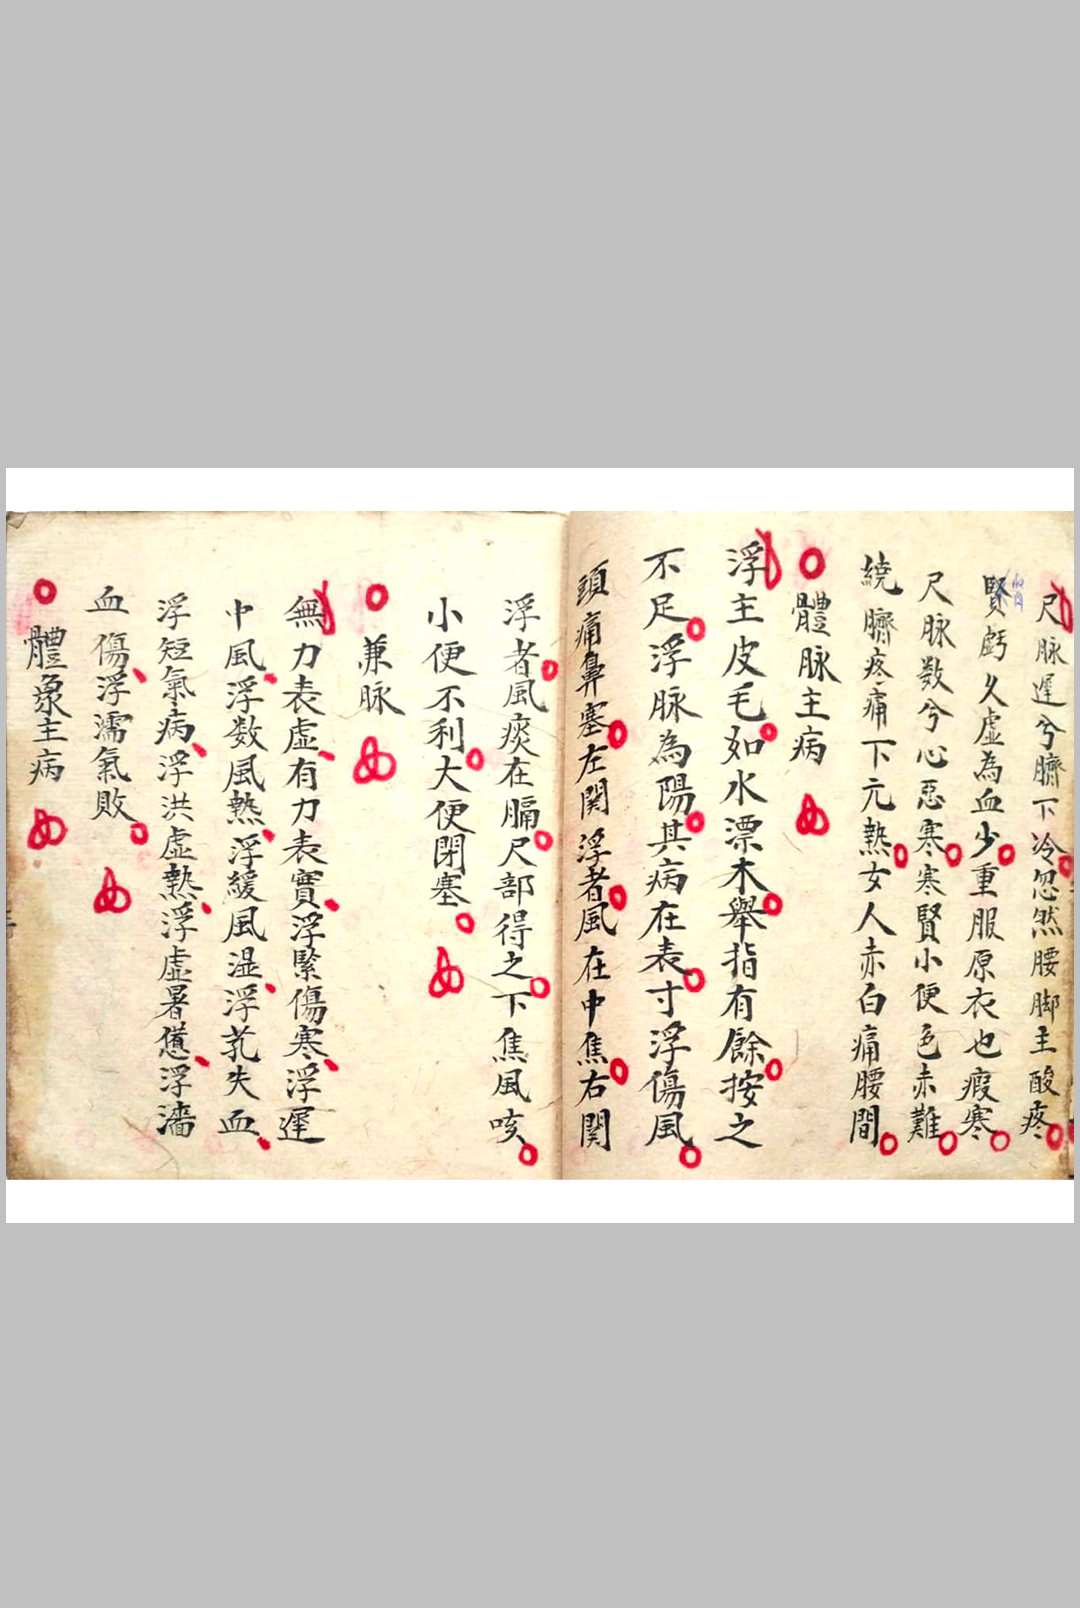 尺脉遲兮臍下冷忽然腰脚主酸疼
賢虧久虛為血少重服原衣也瘕寒
尺脉数兮心惡寒寒賢小便色赤難
繞臍疼痛下元熱女人赤白痛腰間
體脉主病
浮主皮毛如水漂木舉指有餘按之
不足浮脉為陽其病在表寸浮傷風
頭痛鼻塞左関浮者風在中焦右関
浮者風痰在膈尺部得之下焦風咳
小便不利大便閉塞
兼脉
無力表虛有力表實浮緊傷寒浮遲
中風浮数風熱浮緩風湿浮芤失血
浮短氣病浮洪虛熱浮虛暑憊浮濇
血傷浮濡氣敗
體象主病